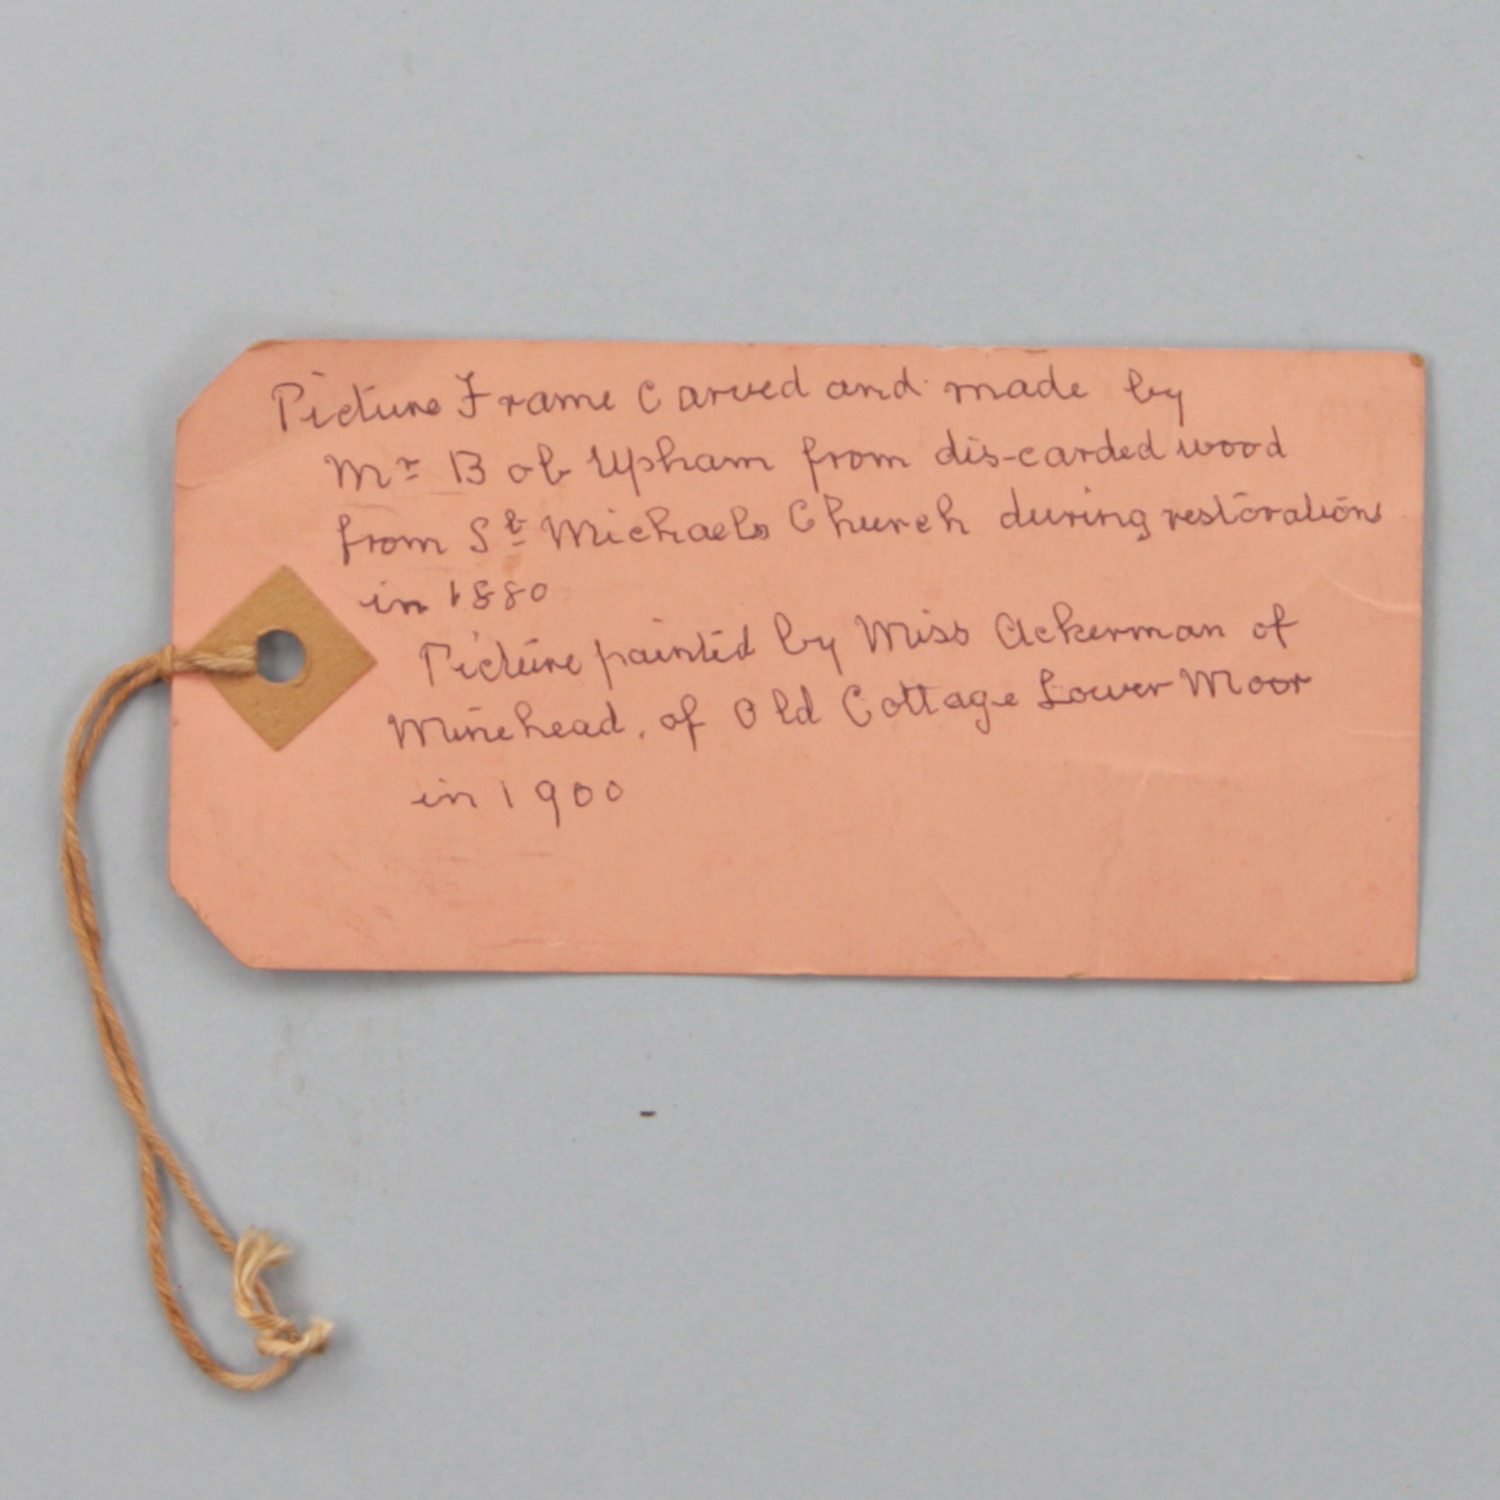 Picture Frame Carved and made by
Mr Bob Upham from dis-carded wood
from St Michaels Church during restorations
in 1880
Picture painted by Miss Ackerman of
Minehead, of Old Cottage Lower Moor
in 1900